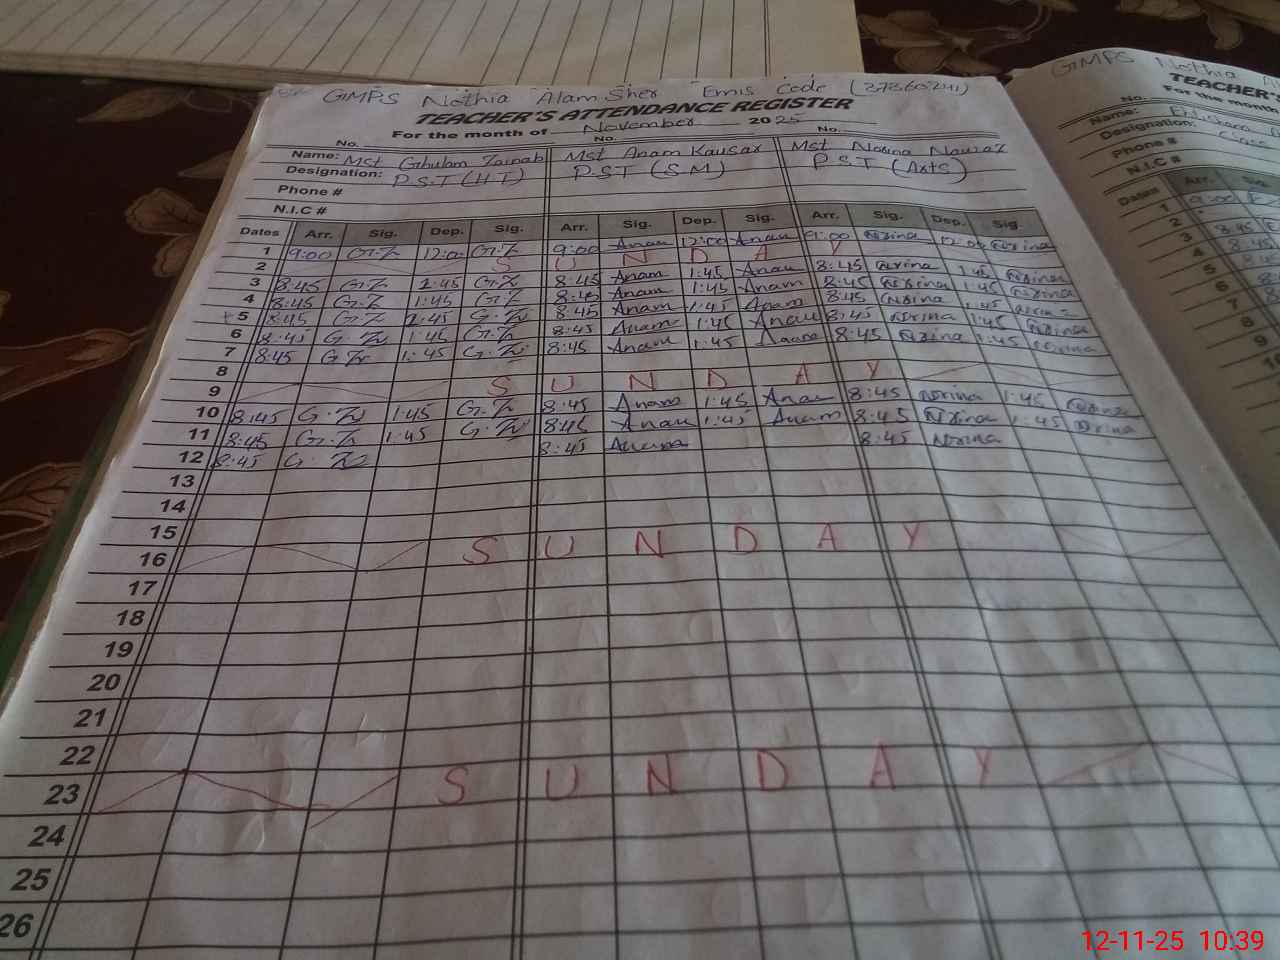 GMPS Nothia Alam Sher Emis Code (37360241)
TEACHER'S ATTENDANCE REGISTER
For the month of November 2025
No. No. No.
Name: Mst Ghulam Zainab Mst Anam Kausar Mst Norina Nawaz
Designation: P.S.T (H.T) P.S.T (S.M) P.S.T (Arts)
Phone #
N.I.C #
Dates Arr. Sig. Dep. Sig. Arr. Sig. Dep. Sig. Arr. Sig. Dep. Sig.
1 9:00 G.Z 12:00 G.Z 9:00 Anam 12:00 Anam 9:00 Norina 12:00 Norina
2 S U N D A Y
3 8:45 G.Z 1:45 G.Z 8:45 Anam 1:45 Anam 8:45 Norina 1:45 Norina
4 8:45 G.Z 1:45 G.Z 8:45 Anam 1:45 Anam 8:45 Norina 1:45 Norina
5 8:45 G.Z 1:45 G.Z 8:45 Anam 1:45 Anam 8:45 Norina 1:45 Norina
6 8:45 G.Z 1:45 G.Z 8:45 Anam 1:45 Anam 8:45 Norina 1:45 Norina
7 8:45 G.Z 1:45 G.Z 8:45 Anam 1:45 Anam 8:45 Norina 1:45 Norina
8
9 S U N D A Y
10 8:45 G.Z 1:45 G.Z 8:45 Anam 1:45 Anam 8:45 Norina 1:45 Norina
11 8:45 G.Z 1:45 G.Z 8:45 Anam 1:45 Anam 8:45 Norina 1:45 Norina
12 8:45 G.Z 8:45 Anam 8:45 Norina
13
14
15
16 S U N D A Y
17
18
19
20
21
22
23 S U N D A Y
24
25
26
GMPS Nothia
TEACHER'S
For the month
No.
Name:
Designation:
Phone #
N.I.C #
Dates Arr. Sig.
1 9:00
2
3 8:45
4 8:45
5
6
7
8
9
10
11
12-11-25 10:39